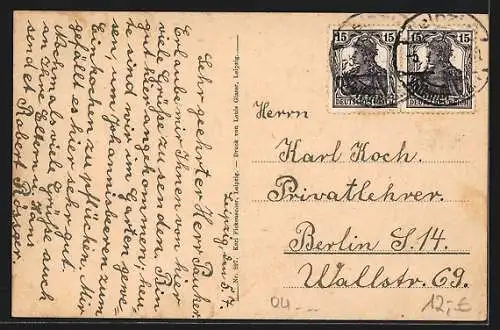 Leipzig den 5. 7.
Sehr geehrter Herr
Erlaube mir Ihnen von hier
viele Grüße zu senden. Bin
gut hier angekommen, heu-
te sind wir im Garten gewe-
sen, um Johannisbeeren zum
Einkochen zu pflücken. Mir
gefällt es hier sehr gut.
Nochmal viele Grüße auch
an Ihre Eltern u.
sendet Robert
Karl Fickenscher, Leipzig. — Druck von Louis Glaser, Leipzig.
15 15
15 15
DEUTSCHES REICH
DEUTSCHES REICH
Herrn
Karl Koch.
Privatlehrer.
Berlin S. 14.
Wallstr. 69.
04
12,-€